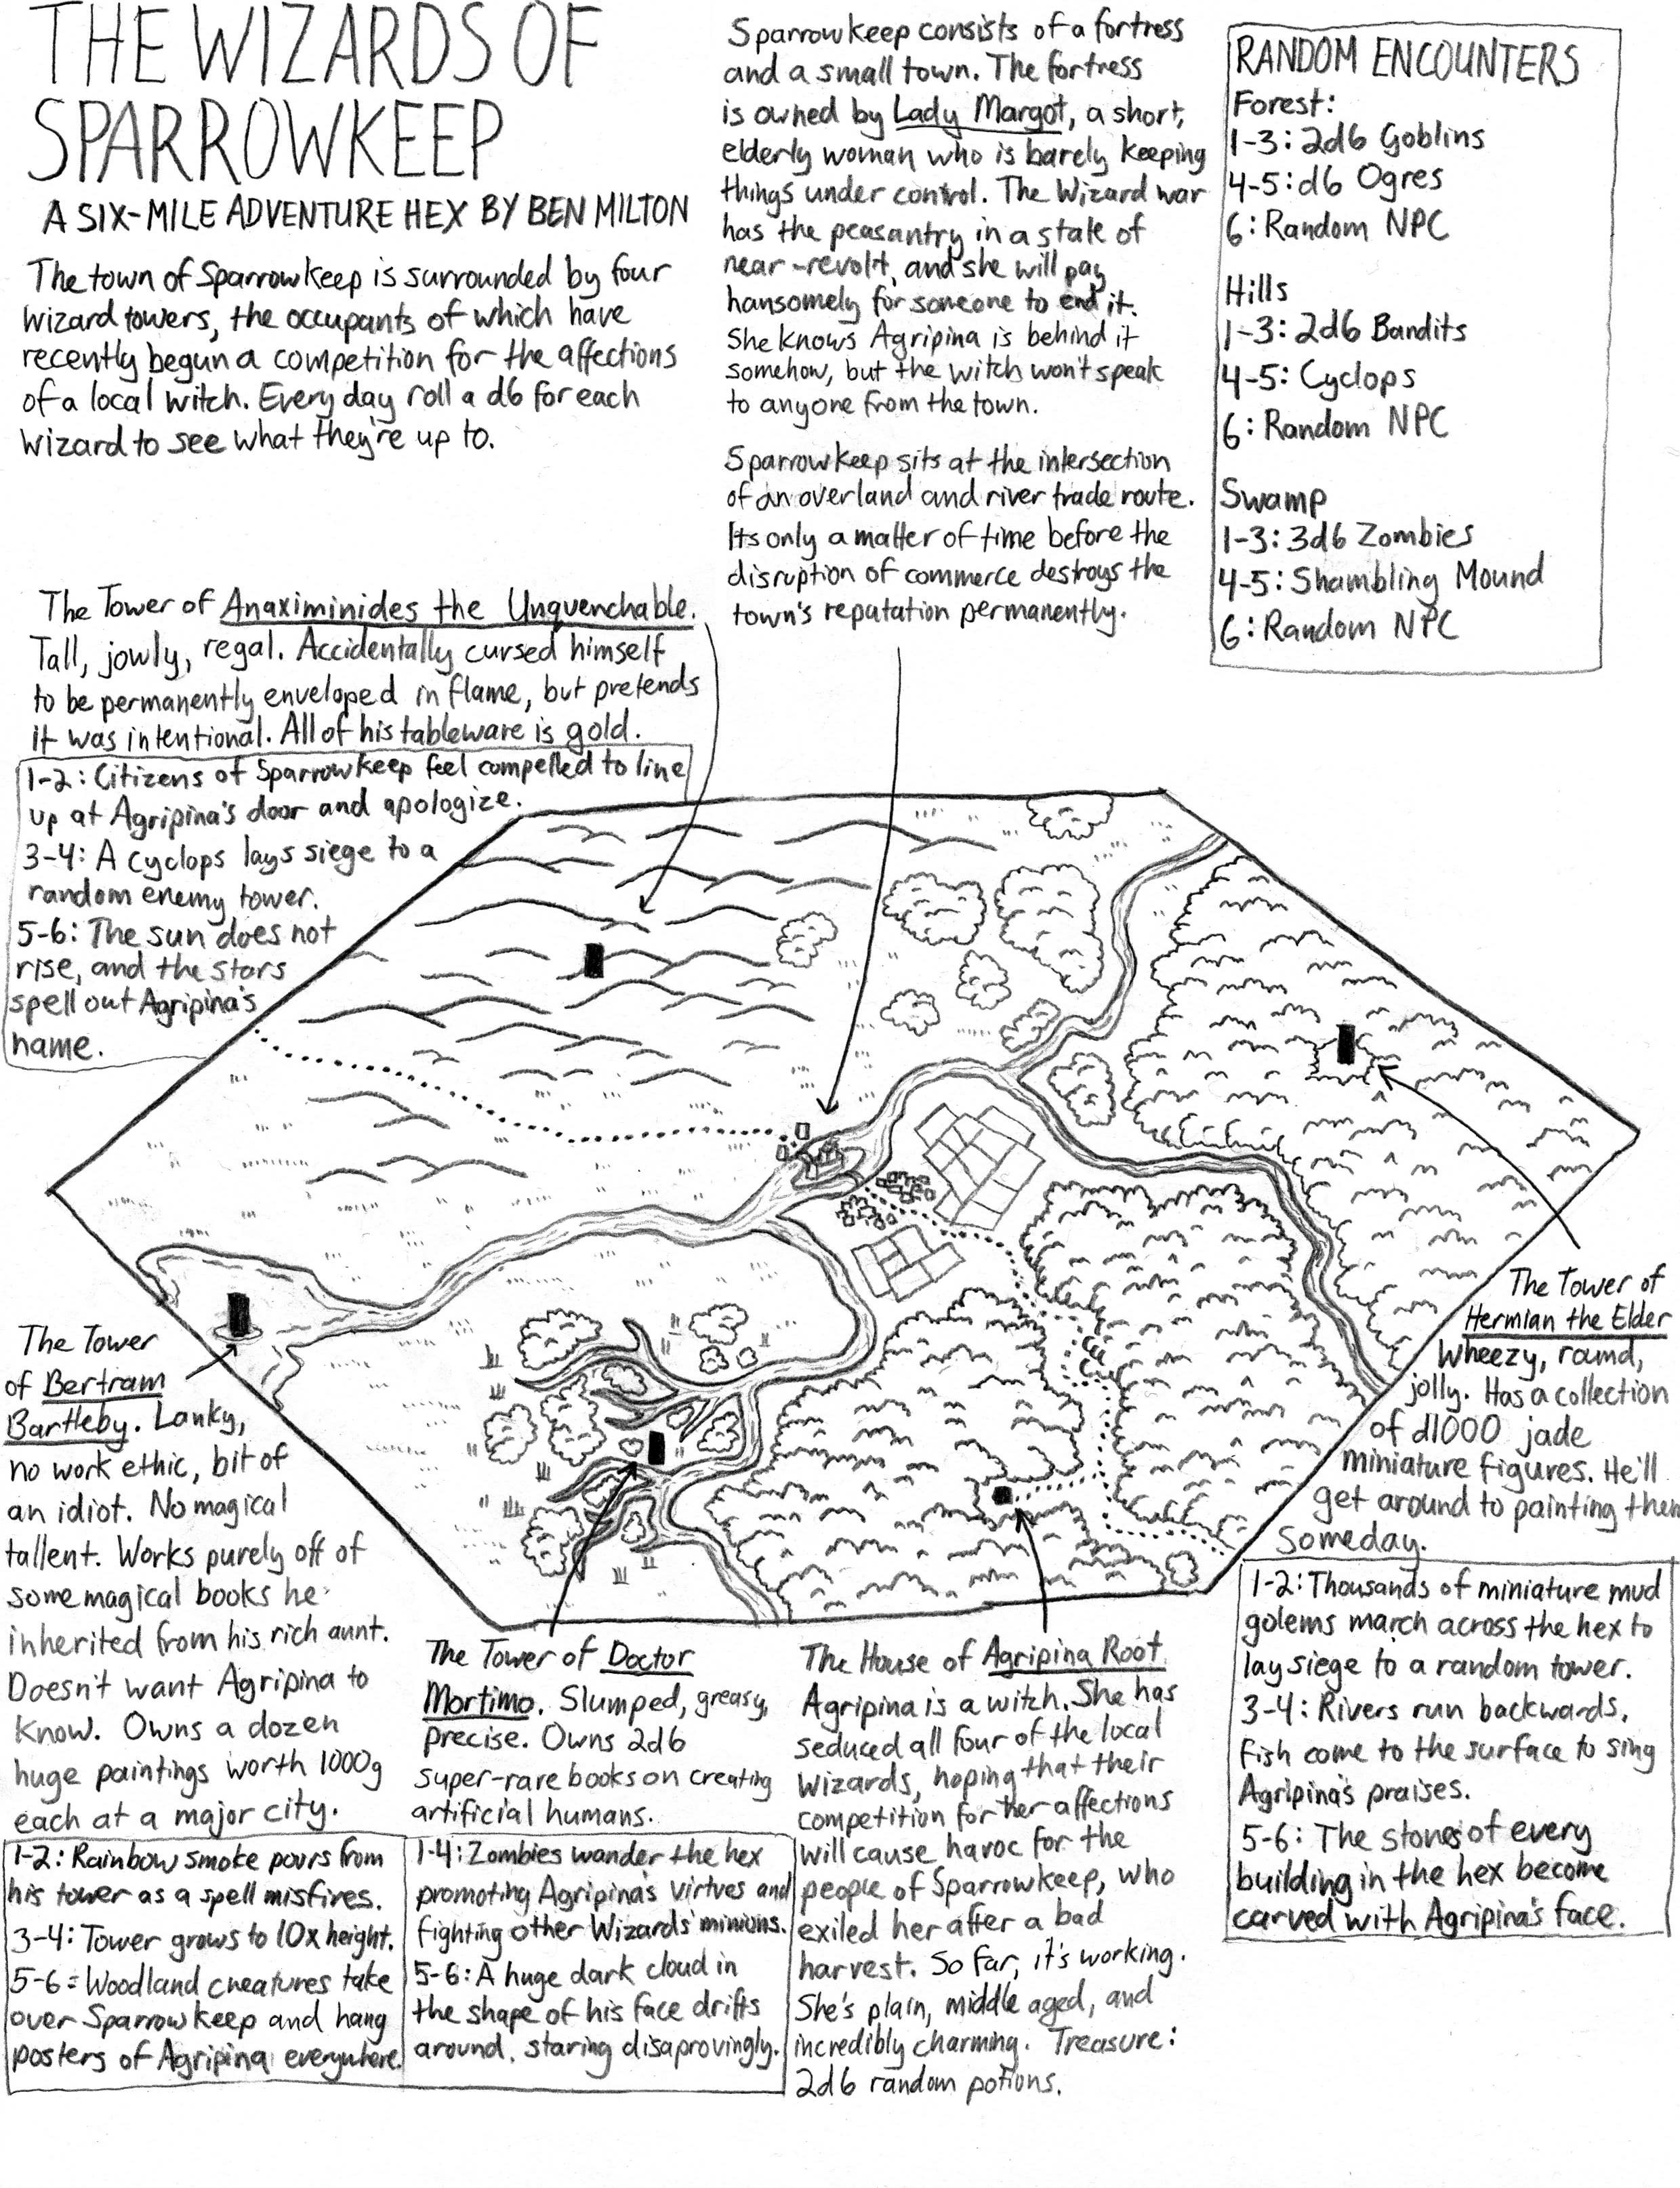 THE WIZARDS OF
SPARROWKEEP
A SIX-MILE ADVENTURE HEX BY BEN MILTON
The town of Sparrowkeep is surrounded by four
Wizard towers, the occupants of which have
recently begun a competition for the affections
of a local witch. Every day roll a d6 for each
Wizard to see what they're up to.
Sparrowkeep consists of a fortress
and a small town. The fortress
is owned by Lady Margot, a short,
elderly woman who is barely keeping
things under control. The Wizard war
has the peasantry in a state of
near-revolt, and she will pay
hansomely for someone to end it.
She knows Agripina is behind it
somehow, but the witch won't speak
to anyone from the town.
Sparrowkeep sits at the intersection
of an overland and river trade route.
Its only a matter of time before the
disruption of commerce destroys the
town's reputation permanently.
RANDOM ENCOUNTERS
Forest:
1-3: 2d6 Goblins
4-5: d6 Ogres
6: Random NPC
Hills
1-3: 2d6 Bandits
4-5: Cyclops
6: Random NPC
Swamp
1-3: 3d6 Zombies
4-5: Shambling Mound
6: Random NPC
The Tower of Anaximinides the Unquenchable.
Tall, jowly, regal. Accidentally cursed himself
to be permanently enveloped in flame, but pretends
it was intentional. All of his tableware is gold.
1-2: Citizens of Sparrowkeep feel compelled to line
up at Agripina's door and apologize.
3-4: A cyclops lays siege to a
random enemy tower.
5-6: The sun does not
rise, and the stars
spell out Agripina's
name.
The Tower
of Bertram
Bartleby. Lanky,
no work ethic, bit of
an idiot. No magical
tallent. Works purely off of
some magical books he
inherited from his rich aunt.
Doesn't want Agripina to
know. Owns a dozen
huge paintings worth 1000g
each at a major city.
1-2: Rainbow smoke pours from
his tower as a spell misfires.
3-4: Tower grows to 10x height.
5-6: Woodland creatures take
over Sparrowkeep and hang
posters of Agripina everywhere.
The Tower of Doctor
Mortimo. Slumped, greasy,
precise. Owns 2d6
super-rare books on creating
artificial humans.
1-4: Zombies wander the hex
promoting Agripina's virtues and
fighting other Wizards' minions.
5-6: A huge dark cloud in
the shape of his face drifts
around, staring disaprovingly.
The House of Agripina Root
Agripina is a witch. She has
seduced all four of the local
Wizards, hoping that their
competition for her affections
will cause havoc for the
people of Sparrowkeep, who
exiled her after a bad
harvest. So far, it's working.
She's plain, middle aged, and
incredibly charming. Treasure:
2d6 random potions.
The Tower of
Hermian the Elder
Wheezy, round,
jolly. Has a collection
of d1000 jade
miniature figures. He'll
get around to painting them
someday.
1-2: Thousands of miniature mud
golems march across the hex to
lay siege to a random tower.
3-4: Rivers run backwards,
fish come to the surface to sing
Agripina's praises.
5-6: The stones of every
building in the hex become
carved with Agripina's face.